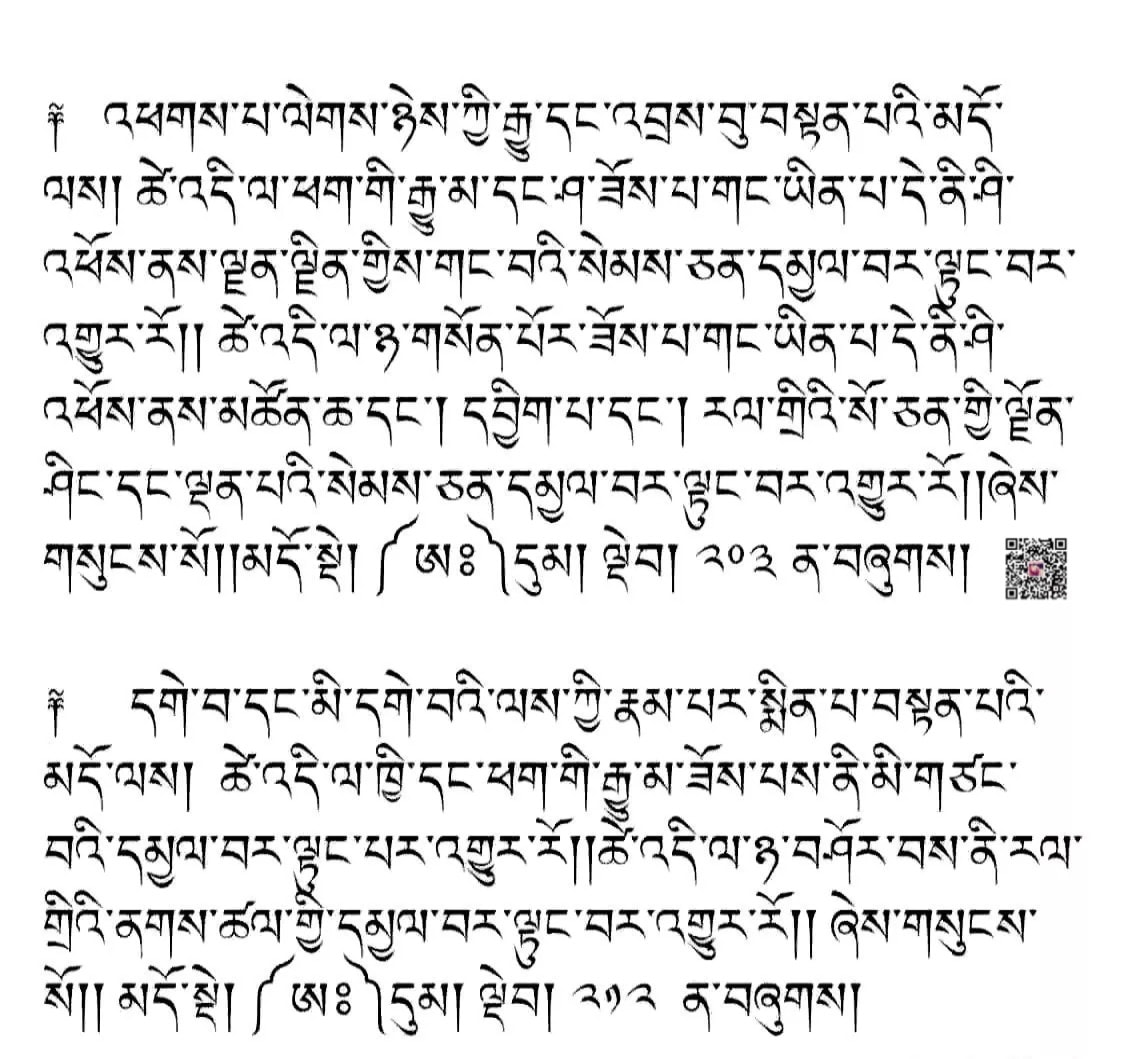 ༈ འཕགས་པ་ལེགས་ཉེས་ཀྱི་རྒྱུ་དང་འབྲས་བུ་བསྟན་པའི་མདོ་
ལས། ཚེ་འདི་ལ་ཕག་གི་རྒྱུ་མ་དང་ཤ་ཟོས་པ་གང་ཡིན་པ་དེ་ནི་ཤི་
འཕོས་ནས་ལྗན་ལྗིན་གྱིས་གང་བའི་སེམས་ཅན་དམྱལ་བར་ལྟུང་བར་
འགྱུར་རོ།། ཚེ་འདི་ལ་ཉ་གསོན་པོར་ཟོས་པ་གང་ཡིན་པ་དེ་ནི་ཤི་
འཕོས་ནས་མཚོན་ཆ་དང་། དབྱིག་པ་དང་། རལ་གྲིའི་སོ་ཅན་གྱི་ལྗོན་
ཤིང་དང་ལྡན་པའི་སེམས་ཅན་དམྱལ་བར་ལྟུང་བར་འགྱུར་རོ།།ཞེས་
གསུངས་སོ།།མདོ་སྡེ། ༼ཨཿ༽དུམ། ལྡེབ། ༢༠༣ ན་བཞུགས།
༈ དགེ་བ་དང་མི་དགེ་བའི་ལས་ཀྱི་རྣམ་པར་སྨིན་པ་བསྟན་པའི་
མདོ་ལས། ཚེ་འདི་ལ་ཁྱི་དང་ཕག་གི་རྒྱུ་མ་ཟོས་པས་ནི་མི་གཙང་
བའི་དམྱལ་བར་ལྟུང་པར་འགྱུར་རོ།།ཚེ་འདི་ལ་ཉ་བཤོར་བས་ནི་རལ་
གྲིའི་ནགས་ཚལ་གྱི་དམྱལ་བར་ལྟུང་བར་འགྱུར་རོ།། ཞེས་གསུངས་
སོ།། མདོ་སྡེ། ༼ཨཿ༽དུམ། ལྡེབ། ༢༡༢ ན་བཞུགས།